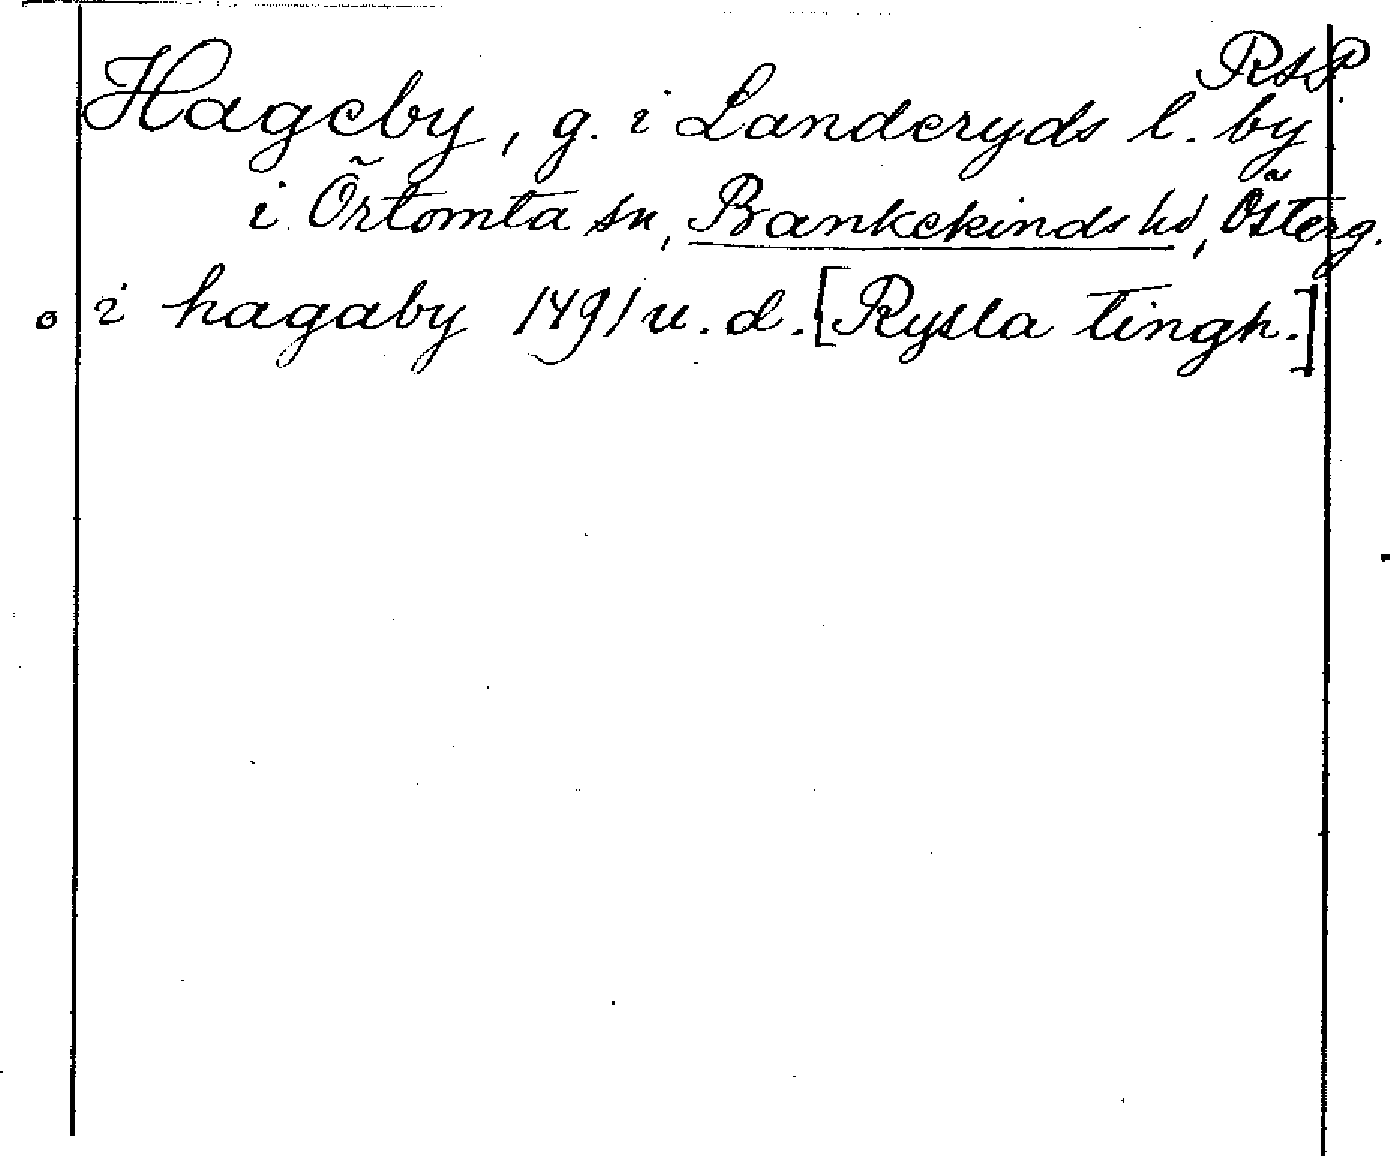 RAP
Hageby, g. i Landeryds l. by
i Örtomta sn, Bankekinds hd, Österg.
o i hagaby 1491 u. d. [Rysla tingh.]